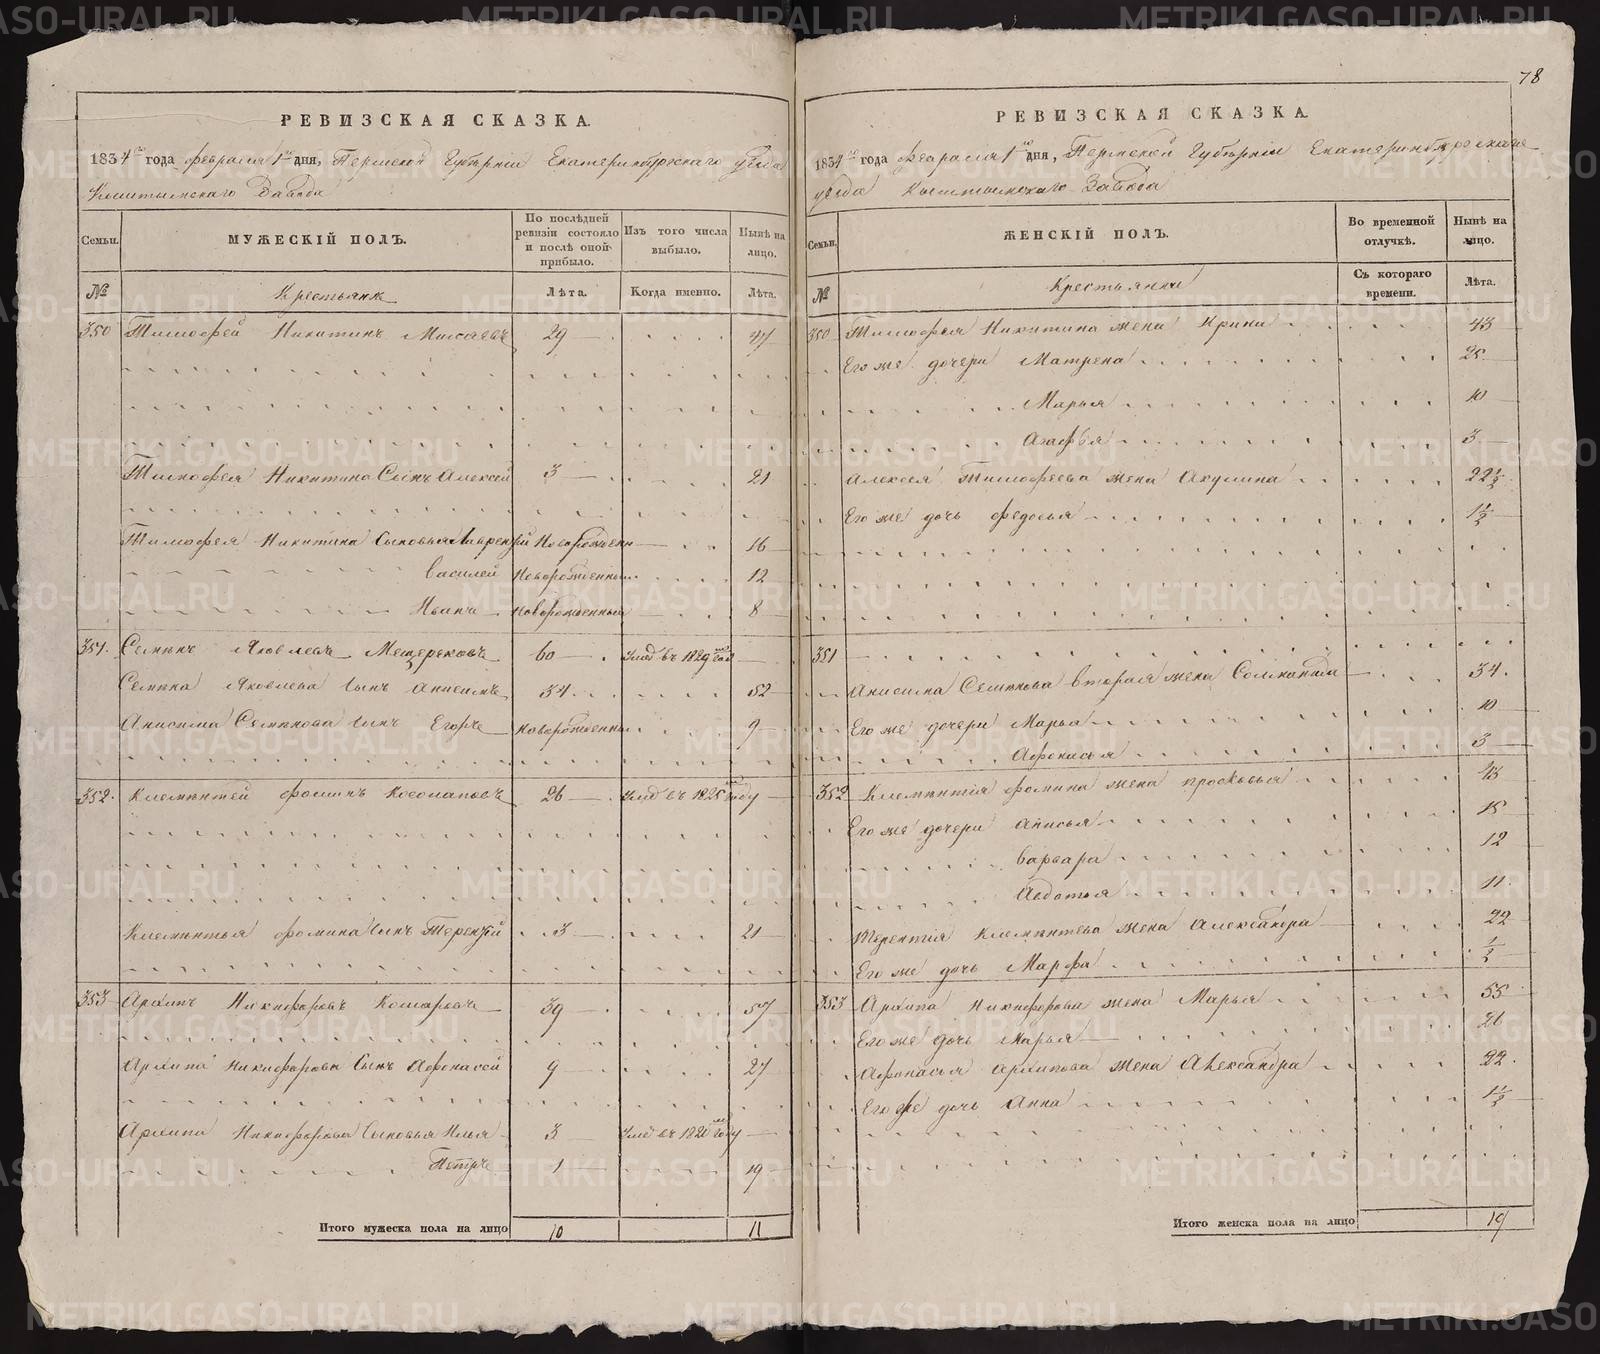 78
РЕВИЗСКАЯ СКАЗКА.
1834го года февраля 1го дня, Пермской Губерніи Екатеринбургскаго уѣзда
Кыштымскаго Завода
Семьи.
МУЖЕСКІЙ ПОЛЪ.
По послѣдней ревизіи состояло и послѣ оной прибыло.
Изъ того числа выбыло.
Нынѣ на лицо.
№
Крестьяне
Лѣта.
Когда именно.
Лѣта.
350 Тимофей Никитинъ 29 47
Тимофея Никитина Сынъ Алексей 3 21
Тимофея Никитина Сыновья Лаврентій Новорожденн 16
Василей Новорожденный 12
Иванъ Новорожденный 8
351. Семенъ Яковлевъ Мещеряковъ 60 умр въ 1829мъ год
Семена Яковлева Сынъ Анисимъ 34 52
Анисима Семенова Сынъ Егоръ Новорожденны 9
352. Клементей Фоминъ 26 умр въ 1825мъ году
Клементья Фомина Сынъ Терентій 3 21
353 Архипъ Никифоровъ Комаровъ 39 57
Архипа Никифорова Сынъ Афонасей 9 27
Архипа Никифорова Сыновья Илья 3 умр въ 1820мъ году
Петръ 1 19
Итого мужеска пола на лицо 10 11
РЕВИЗСКАЯ СКАЗКА.
1834го года февраля 1го дня, Пермской Губерніи Екатеринбургскаго
уѣзда Кыштымскаго Завода
Семьи.
ЖЕНСКІЙ ПОЛЪ.
Во временной отлучкѣ.
Нынѣ на лицо.
№
Крестьянки
Съ котораго времени.
Лѣта.
350 Тимофея Никитина жена Ирина 43
Его же дочери Матрена 25
Марья 10
Агафья 3
Алексея Тимофеева жена Акулина 22½
Его же дочь Федосья 1½
351
Анисима Семенова вторая жена 34.
Его же дочери Марья 10
Афонасья 3
352 Клементія Фомина жена Просковья 43
Его же дочери Анисья 15
Варвара 12
Авдотья 11
Терентія Клементева жена Александра 22
Его же дочь Марфа ½
353 Архипа Никифорова жена Марья 55
Его же дочь Марья 26
Афонасья Архипова жена Александра 22.
Его же дочь Анна 1½
Итого женска пола на лицо 19
METRIKI.GASO-URAL.RU